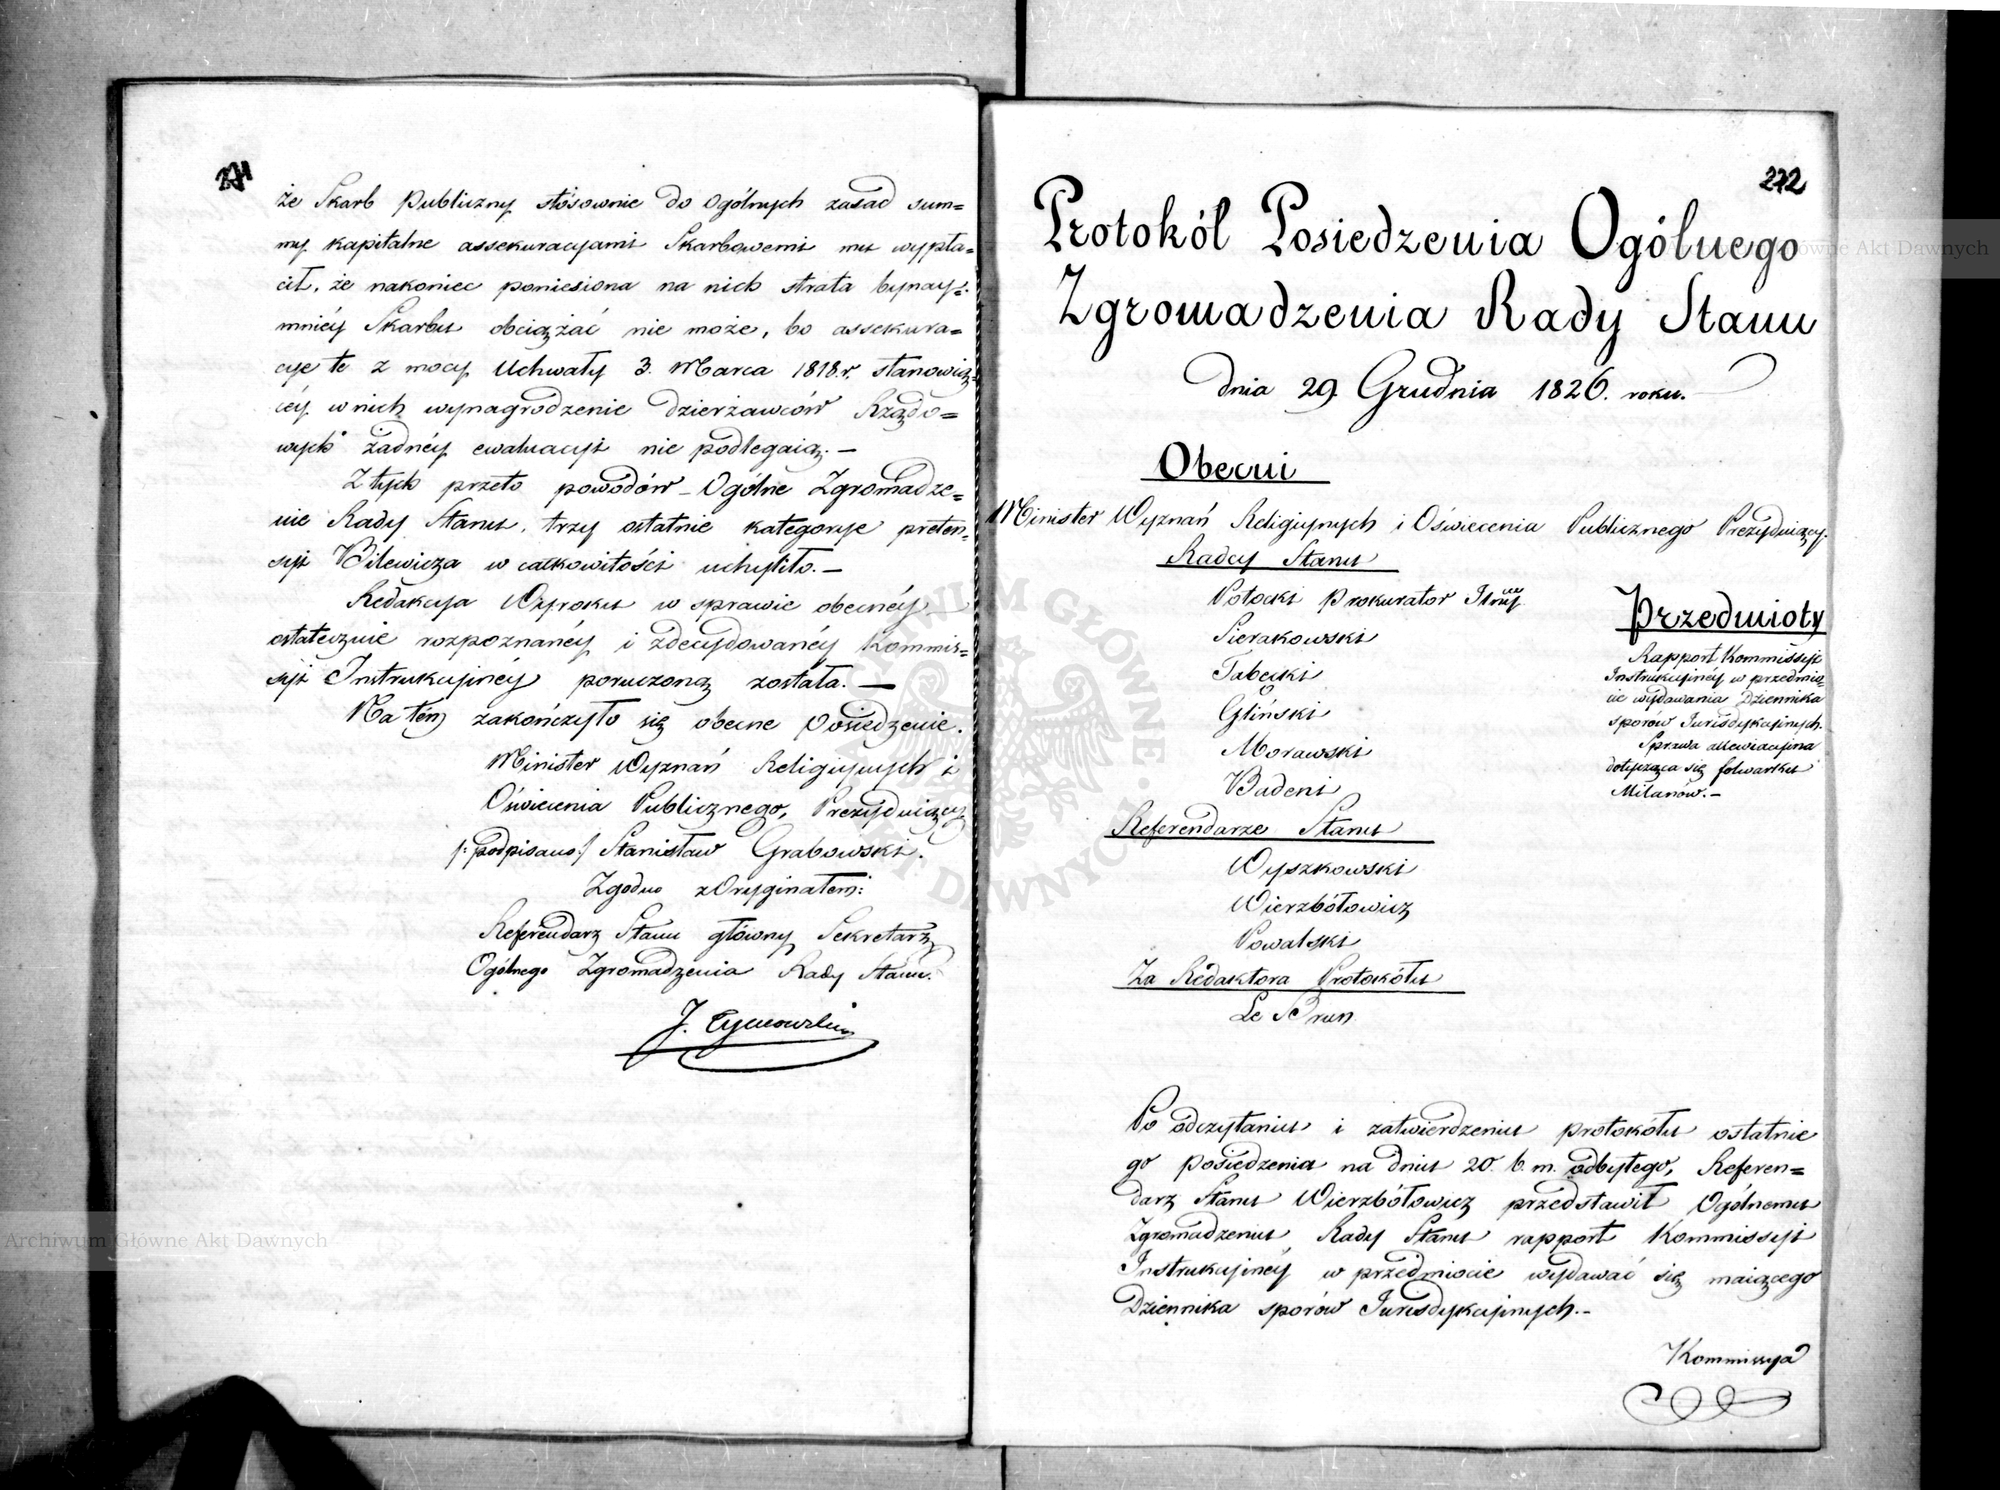 271
że Skarb Publiczny stósownie do ogólnych zasad sum=
my kapitalne assekuracyami Skarbowemi mu wypła=
cił, że nakoniec poniesiona na nich strata bynay=
mniéy Skarbu obciążać nie może, bo assekura=
cye te z mocy Uchwały 3. Marca 1818.r. stanowią=
céy w nich wynagrodzenie dzierżawców Rządo=
wych żadnéy ewaluacyi nie podlegaią. —
Z tych przeto powodów — Ogólne Zgromadze=
nie Rady Stanu, trzy ostatnie kategorye preten=
syi Bilewicza w całkowitości uchyliło. —
Redakcya Wyroku w sprawie obecnéy
ostatecznie rozpoznanéy i zdecydowanéy Kommis=
syi Instrukcyinéy poruczoną została. —
Na tém zakończyło się obecne Posiedzenie.
Minister Wyznań Religiynych i
Oświecenia Publicznego, Prezyduiący
/: podpisano :/ Stanisław Grabowski.
Zgodno z Oryginałem:
Referendarz Stanu główny Sekretarz
Ogólnego Zgromadzenia Rady Stanu.
J. Tymowski
272
Protokół Posiedzenia Ogólnego
Zgromadzenia Rady Stanu
dnia 29. Grudnia 1826. roku.
Obecni
Minister Wyznań Religiynych i Oświecenia Publicznego Prezyduiący.
Radcy Stanu
Potocki Prokurator
Sierakowski
Tabęcki
Gliński
Morawski
Badeni
Referendarze Stanu
Wyszkowski
Wierzbółowicz
Powalski
Za Redaktora Protokółu
Le Brun
Przedmioty
Rapport Kommissyi
Instrukcyinéy w przedmio=
cie wydawania Dziennika
sporów Jurisdykcyinych.
Sprawa allewiacyina
dotycząca się folwarku
Milanów. —
Po odczytaniu i zatwierdzeniu protokółu ostatnie
go posiedzenia na dniu 20. b. m. odbytego, Referen=
darz Stanu Wierzbółowicz przedstawił Ogólnemu
Zgromadzeniu Rady Stanu rapport Kommissyi
Instrukcyinéy w przedmiocie wydawać się maiącego
Dziennika sporów Jurisdykcyinych. —
Kommissya
Archiwum Główne Akt Dawnych